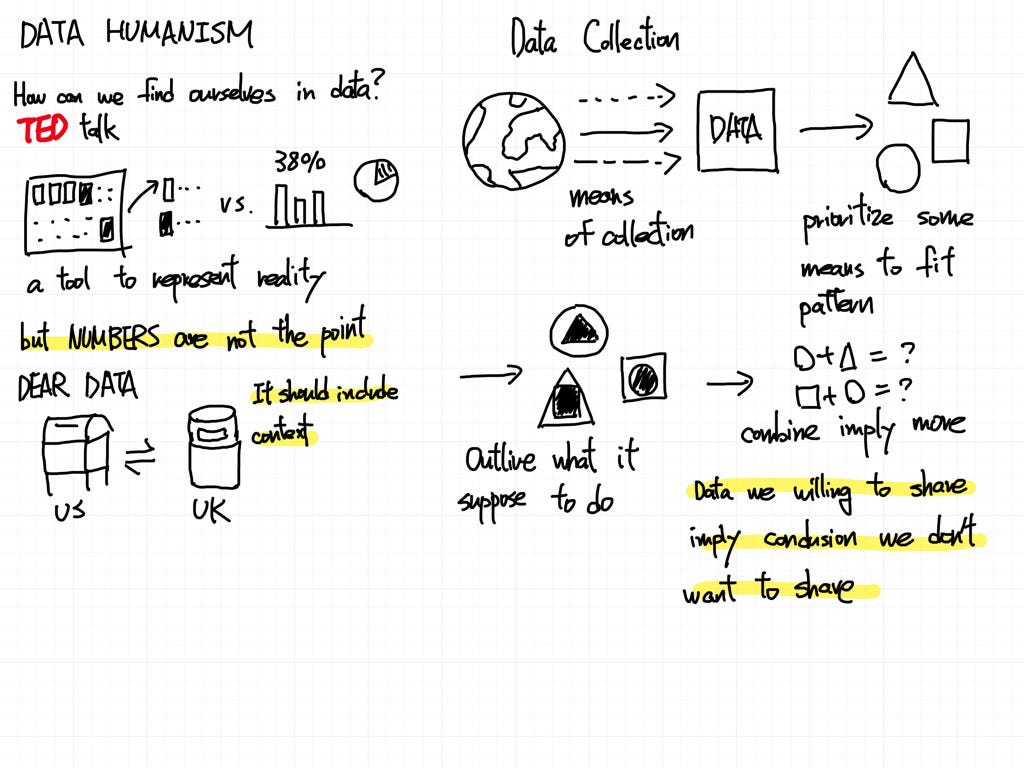 DATA HUMANISM
How can we find ourselves in data?
TED talk
38%
vs.
a tool to represent reality
but NUMBERS are not the point
DEAR DATA
It should include
context
US
UK
Data Collection
DATA
means
of collection
prioritize some
means to fit
pattern
Outlive what it
suppose to do
O + Δ = ?
□ + O = ?
combine imply more
Data we willing to share
imply conclusion we don't
want to share